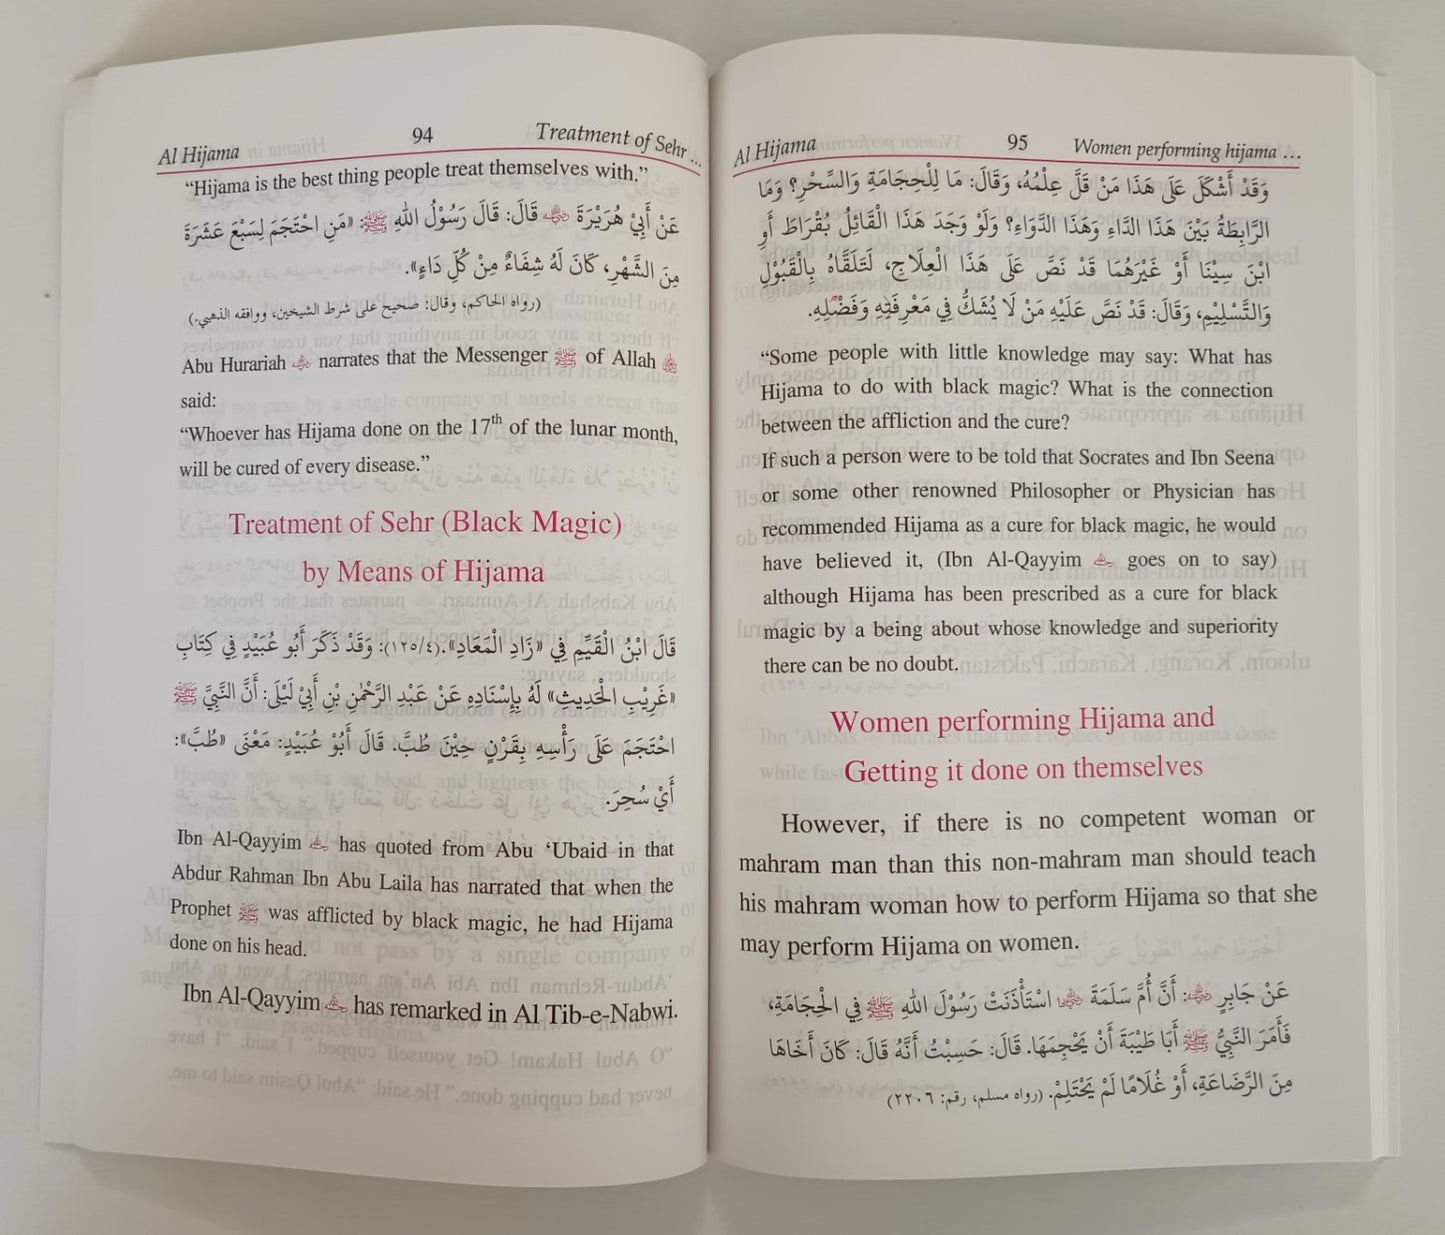 Al Hijama 94 Treatment of Sehr ...
“Hijama is the best thing people treat themselves with.”
عَنْ أَبِيْ هُرَيْرَةَ رضي الله عنه قَالَ: قَالَ رَسُوْلُ اللهِ ﷺ: «مَنِ احْتَجَمَ لِسَبْعَ عَشَرَةَ
مِنَ الشَّهْرِ، كَانَ لَهُ شِفَاءٌ مِنْ كُلِّ دَاءٍ».
(رواه الحاكم، وقال: صحيح على شرط الشيخين، ووافقه الذهبي.)
Abu Hurariah narrates that the Messenger ﷺ of Allah
said:
“Whoever has Hijama done on the 17th of the lunar month,
will be cured of every disease.”
Treatment of Sehr (Black Magic)
by Means of Hijama
قَالَ ابْنُ الْقَيِّمِ فِي «زَادِ الْمَعَادِ».(١٢٥/٤): وَقَدْ ذَكَرَ أَبُو عُبَيْدٍ فِي كِتَابِ
«غَرِيْبِ الْحَدِيثِ» لَهُ بِإِسْنَادِهِ عَنْ عَبْدِ الرَّحْمٰنِ بْنِ أَبِيْ لَيْلَى: أَنَّ النَّبِيَّ ﷺ
احْتَجَمَ عَلَى رَأْسِهِ بِقَرْنٍ حِيْنَ طُبَّ. قَالَ أَبُوْ عُبَيْدٍ: مَعْنَى «طُبَّ»:
أَيْ سُحِرَ.
Ibn Al-Qayyim has quoted from Abu ‘Ubaid in that
Abdur Rahman Ibn Abu Laila has narrated that when the
Prophet ﷺ was afflicted by black magic, he had Hijama
done on his head.
Ibn Al-Qayyim has remarked in Al Tib-e-Nabwi.
Al Hijama 95 Women performing hijama ...
وَقَدْ أَشْكَلَ عَلَى هَذَا مَنْ قَلَّ عِلْمُهُ، وَقَالَ: مَا لِلْحِجَامَةِ وَالسِّحْرِ؟ وَمَا
الرَّابِطَةُ بَيْنَ هَذَا الدَّاءِ وَهَذَا الدَّوَاءِ؟ وَلَوْ وَجَدَ هَذَا الْقَائِلُ بُقْرَاطَ أَوِ
ابْنَ سِيْنَا أَوْ غَيْرَهُمَا قَدْ نَصَّ عَلَى هَذَا الْعِلَاجِ، لَتَلَقَّاهُ بِالْقَبُوْلِ
وَالتَّسْلِيْمِ، وَقَالَ: قَدْ نَصَّ عَلَيْهِ مَنْ لَا يُشَكُّ فِي مَعْرِفَتِهِ وَفَضْلِهِ.
“Some people with little knowledge may say: What has
Hijama to do with black magic? What is the connection
between the affliction and the cure?
If such a person were to be told that Socrates and Ibn Seena
or some other renowned Philosopher or Physician has
recommended Hijama as a cure for black magic, he would
have believed it, (Ibn Al-Qayyim goes on to say)
although Hijama has been prescribed as a cure for black
magic by a being about whose knowledge and superiority
there can be no doubt.
Women performing Hijama and
Getting it done on themselves
However, if there is no competent woman or
mahram man than this non-mahram man should teach
his mahram woman how to perform Hijama so that she
may perform Hijama on women.
عَنْ جَابِرٍ رضي الله عنه: أَنَّ أُمَّ سَلَمَةَ رضي الله عنها اسْتَأْذَنَتْ رَسُوْلَ اللهِ ﷺ فِي الْحِجَامَةِ،
فَأَمَرَ النَّبِيُّ ﷺ أَبَا طَيْبَةَ أَنْ يَحْجِمَهَا. قَالَ: حَسِبْتُ أَنَّهُ قَالَ: كَانَ أَخَاهَا
مِنَ الرَّضَاعَةِ، أَوْ غُلَامًا لَمْ يَحْتَلِمْ. (رواه مسلم، رقم: ٢٢٠٦)